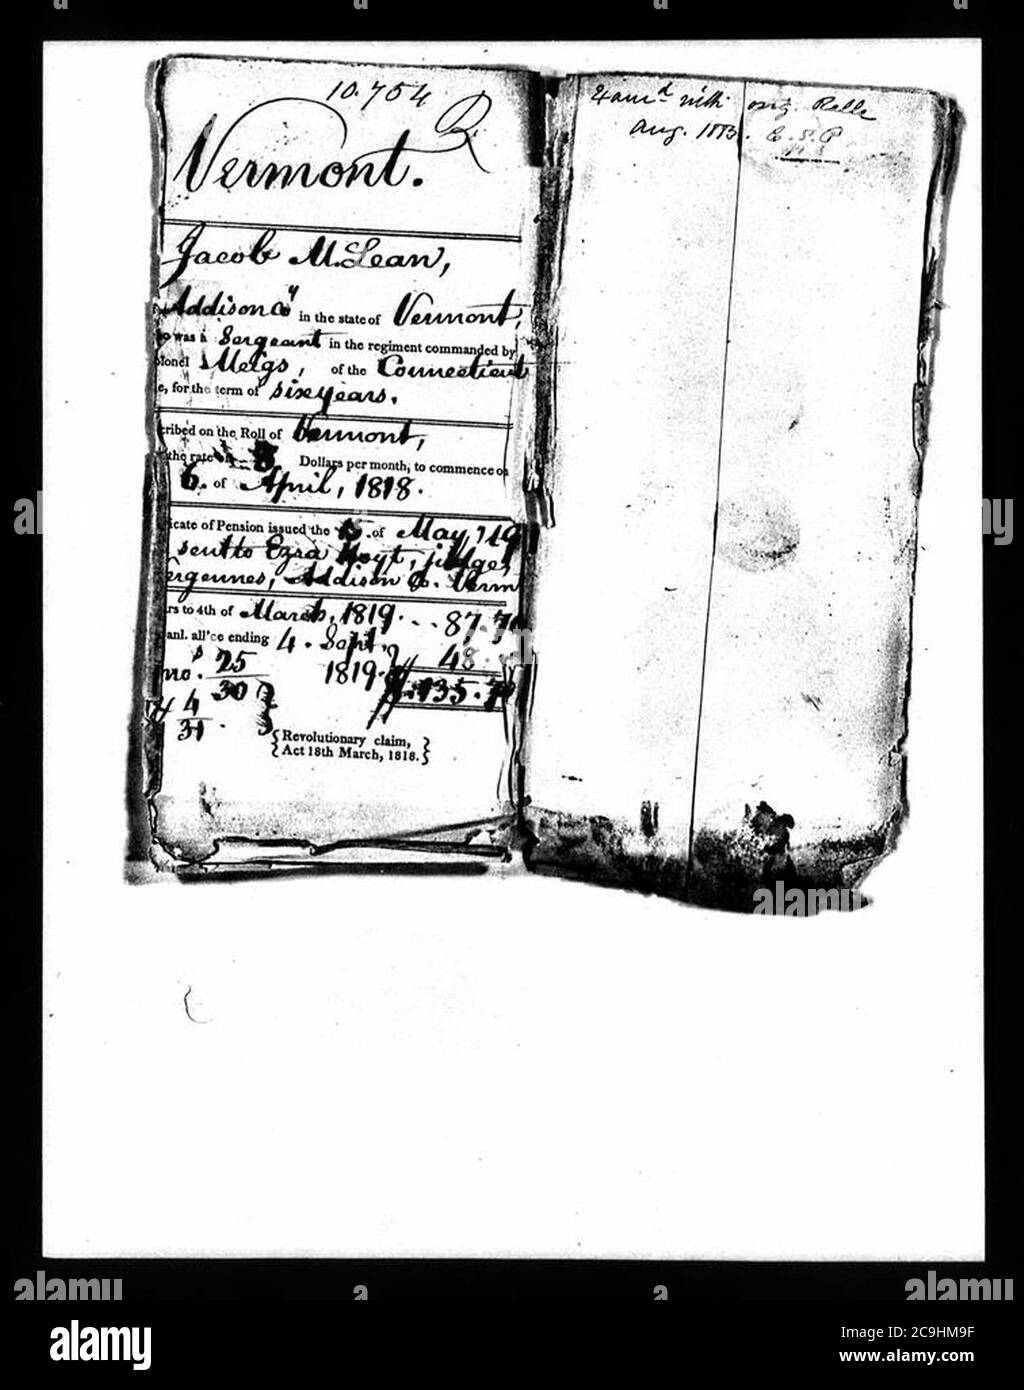 10.754
R
Vermont.
Jacob M.Lean,
Addison Coy in the state of Vermont,
was a Sergeant in the regiment commanded by
olonel Meigs, of the Connecticut
e, for the term of six years.
cribed on the Roll of Vermont,
the rate of 8 Dollars per month, to commence on
6. of April, 1818.
icate of Pension issued the 15. of May, 19
sent to Ezra Hoyt, judge,
ergennes, Addison Co. Verm
rs to 4th of March, 1819 .. 87.70
anl. all'ce ending 4. Sept. 48.
1819. 135.70
mo. 25
30
4
31
{Revolutionary claim,}
{Act 18th March, 1818.}
Exam'd with orig. Rolls
Aug. 1883. E.S.P
alamy
a
alamy
Image ID: 2C9HM9F
www.alamy.com